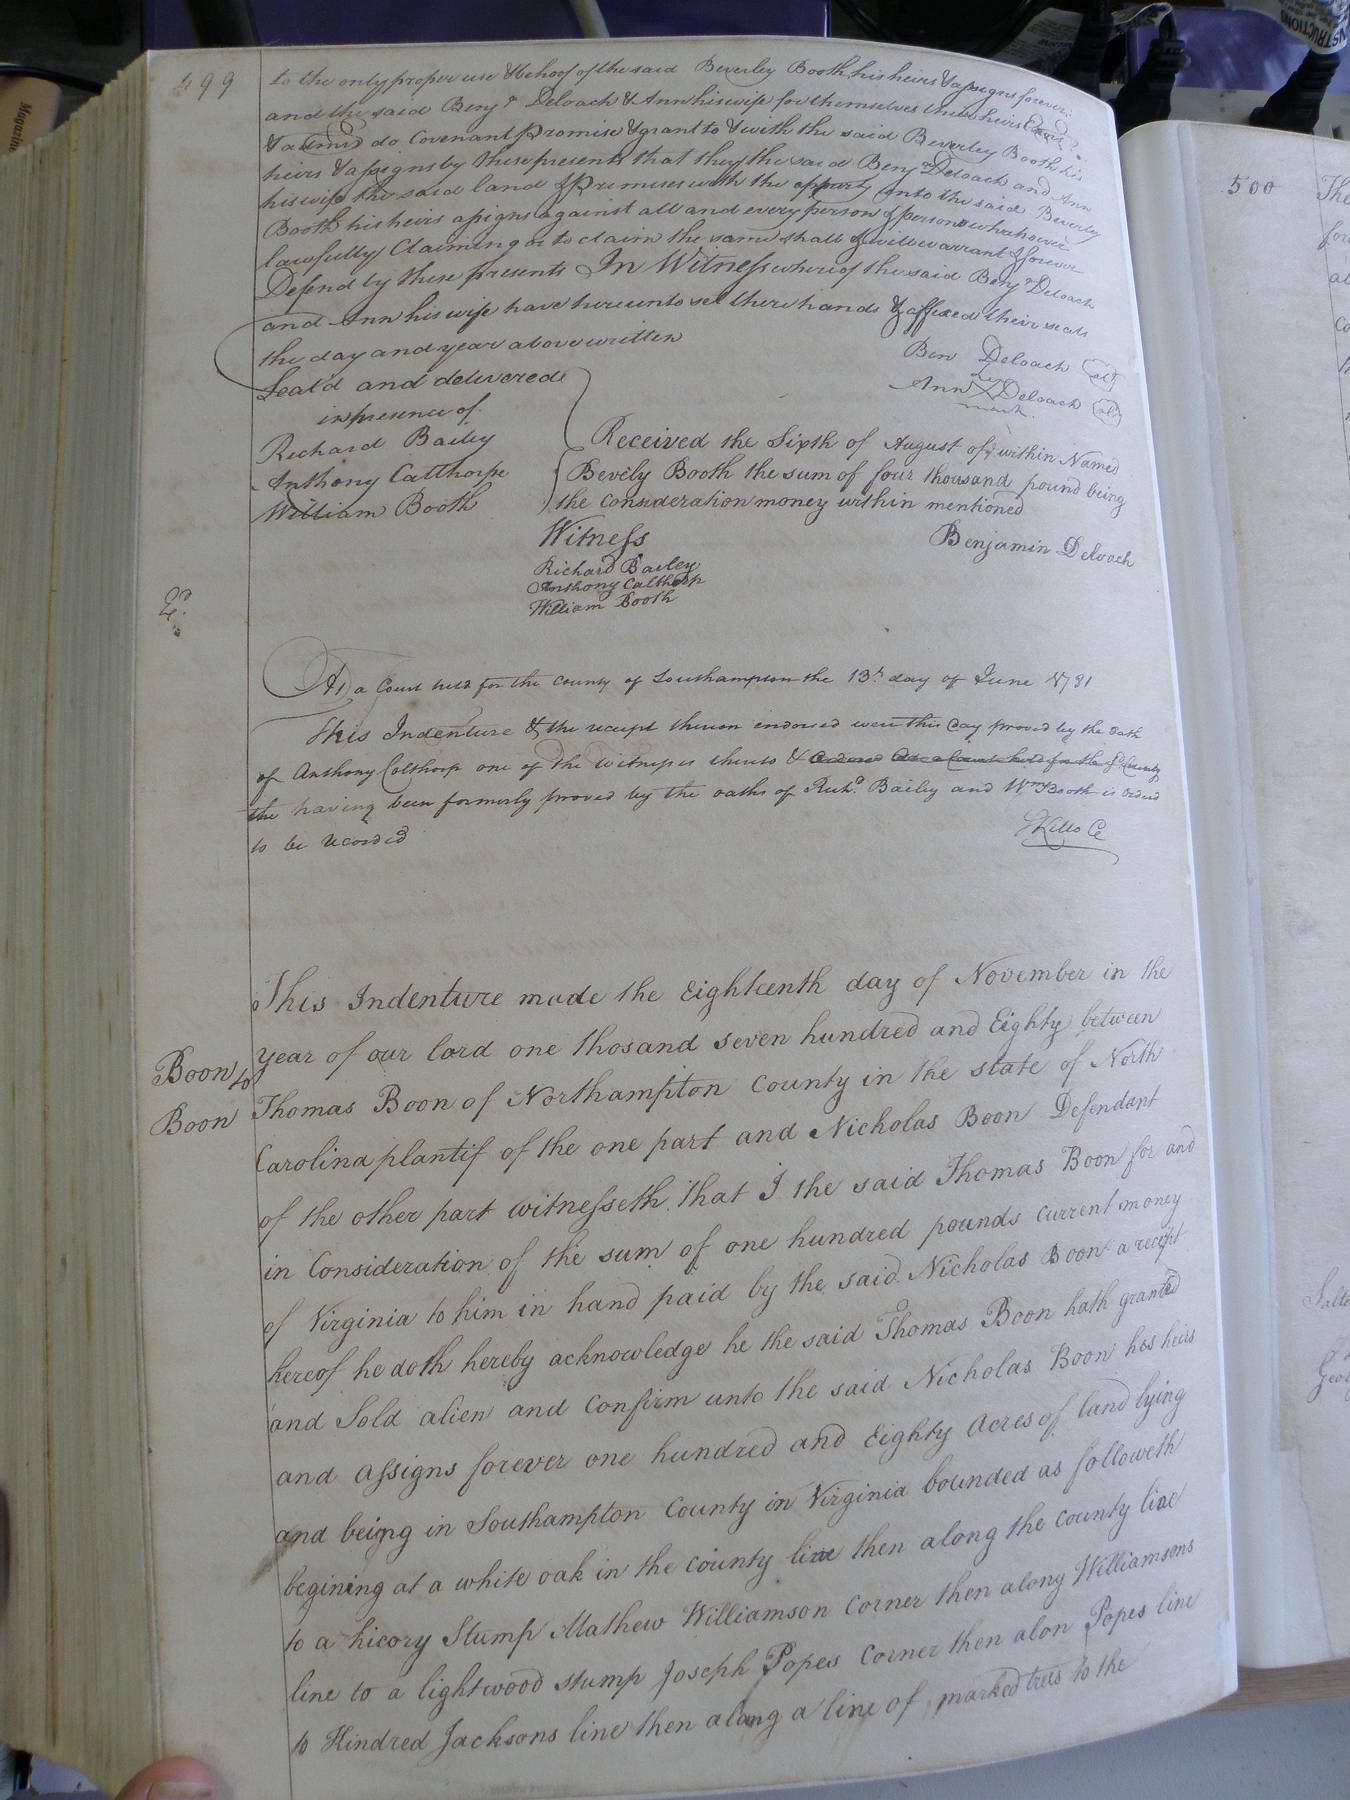 499
to the only proper use & behoof of the said Beverley Booth his heirs & assigns forever
and the said Benjn Deloach & Ann his wife for themselves their heirs
do covenant promise & grant to & with the said Beverley Booth his
heirs & assigns by these presents that they the said Benjn Deloach and Ann
his wife the said land & premises with the appurts unto the said Beverly
Booth his heirs assigns against all and every person & persons whatsoever
lawfully Claiming or to claim the same shall & will warrant & forever
Defend by these presents In Witness whereof the said Benjn Deloach
and Ann his wife have hereunto set there hands & affixed their seals
the day and year above written
Ben Deloach
Seal'd and delivered
in presence of
her
Ann X Deloach
mark
Richard Bailey
Anthony Calthorpe
William Booth
Received the Sixth of August of within Named
Bevely Booth the sum of four thousand pound being
the consideration money within mentioned
Witness
Benjamin Deloach
Richard Bailey
Anthony Calthorp
William Booth
At a Court held for the County of Southampton the 13th day of June 1781
This Indenture & the receipt thereon endorsed were this day proved by the oath
of Anthony Calthorp one of the Witnesses thereto & Ordered At a Court held for the sd County
the having been formerly proved by the oaths of Richd Bailey and Wm Booth is Orderd
to be recorded
Boon to
Boon
This Indenture made the Eighteenth day of November in the
year of our lord one thosand seven hundred and Eighty between
Thomas Boon of Northampton County in the state of North
Carolina plantif of the one part and Nicholas Boon Defendant
of the other part witnesseth that I the said Thomas Boon for and
in Consideration of the sum of one hundred pounds current money
of Virginia to him in hand paid by the said Nicholas Boon a receipt
hereof he doth hereby acknowledge he the said Thomas Boon hath granted
and Sold alien and Confirm unto the said Nicholas Boon his heirs
and assigns forever one hundred and Eighty Acres of land lying
and being in Southampton County in Virginia bounded as followeth
begining at a white oak in the county line then along the county line
to a hicory Stump Mathew Williamson Corner then along Williamsons
line to a lightwood stump Joseph Popes Corner then alon Popes line
to Kindred Jacksons line then along a line of marked trees to the
500